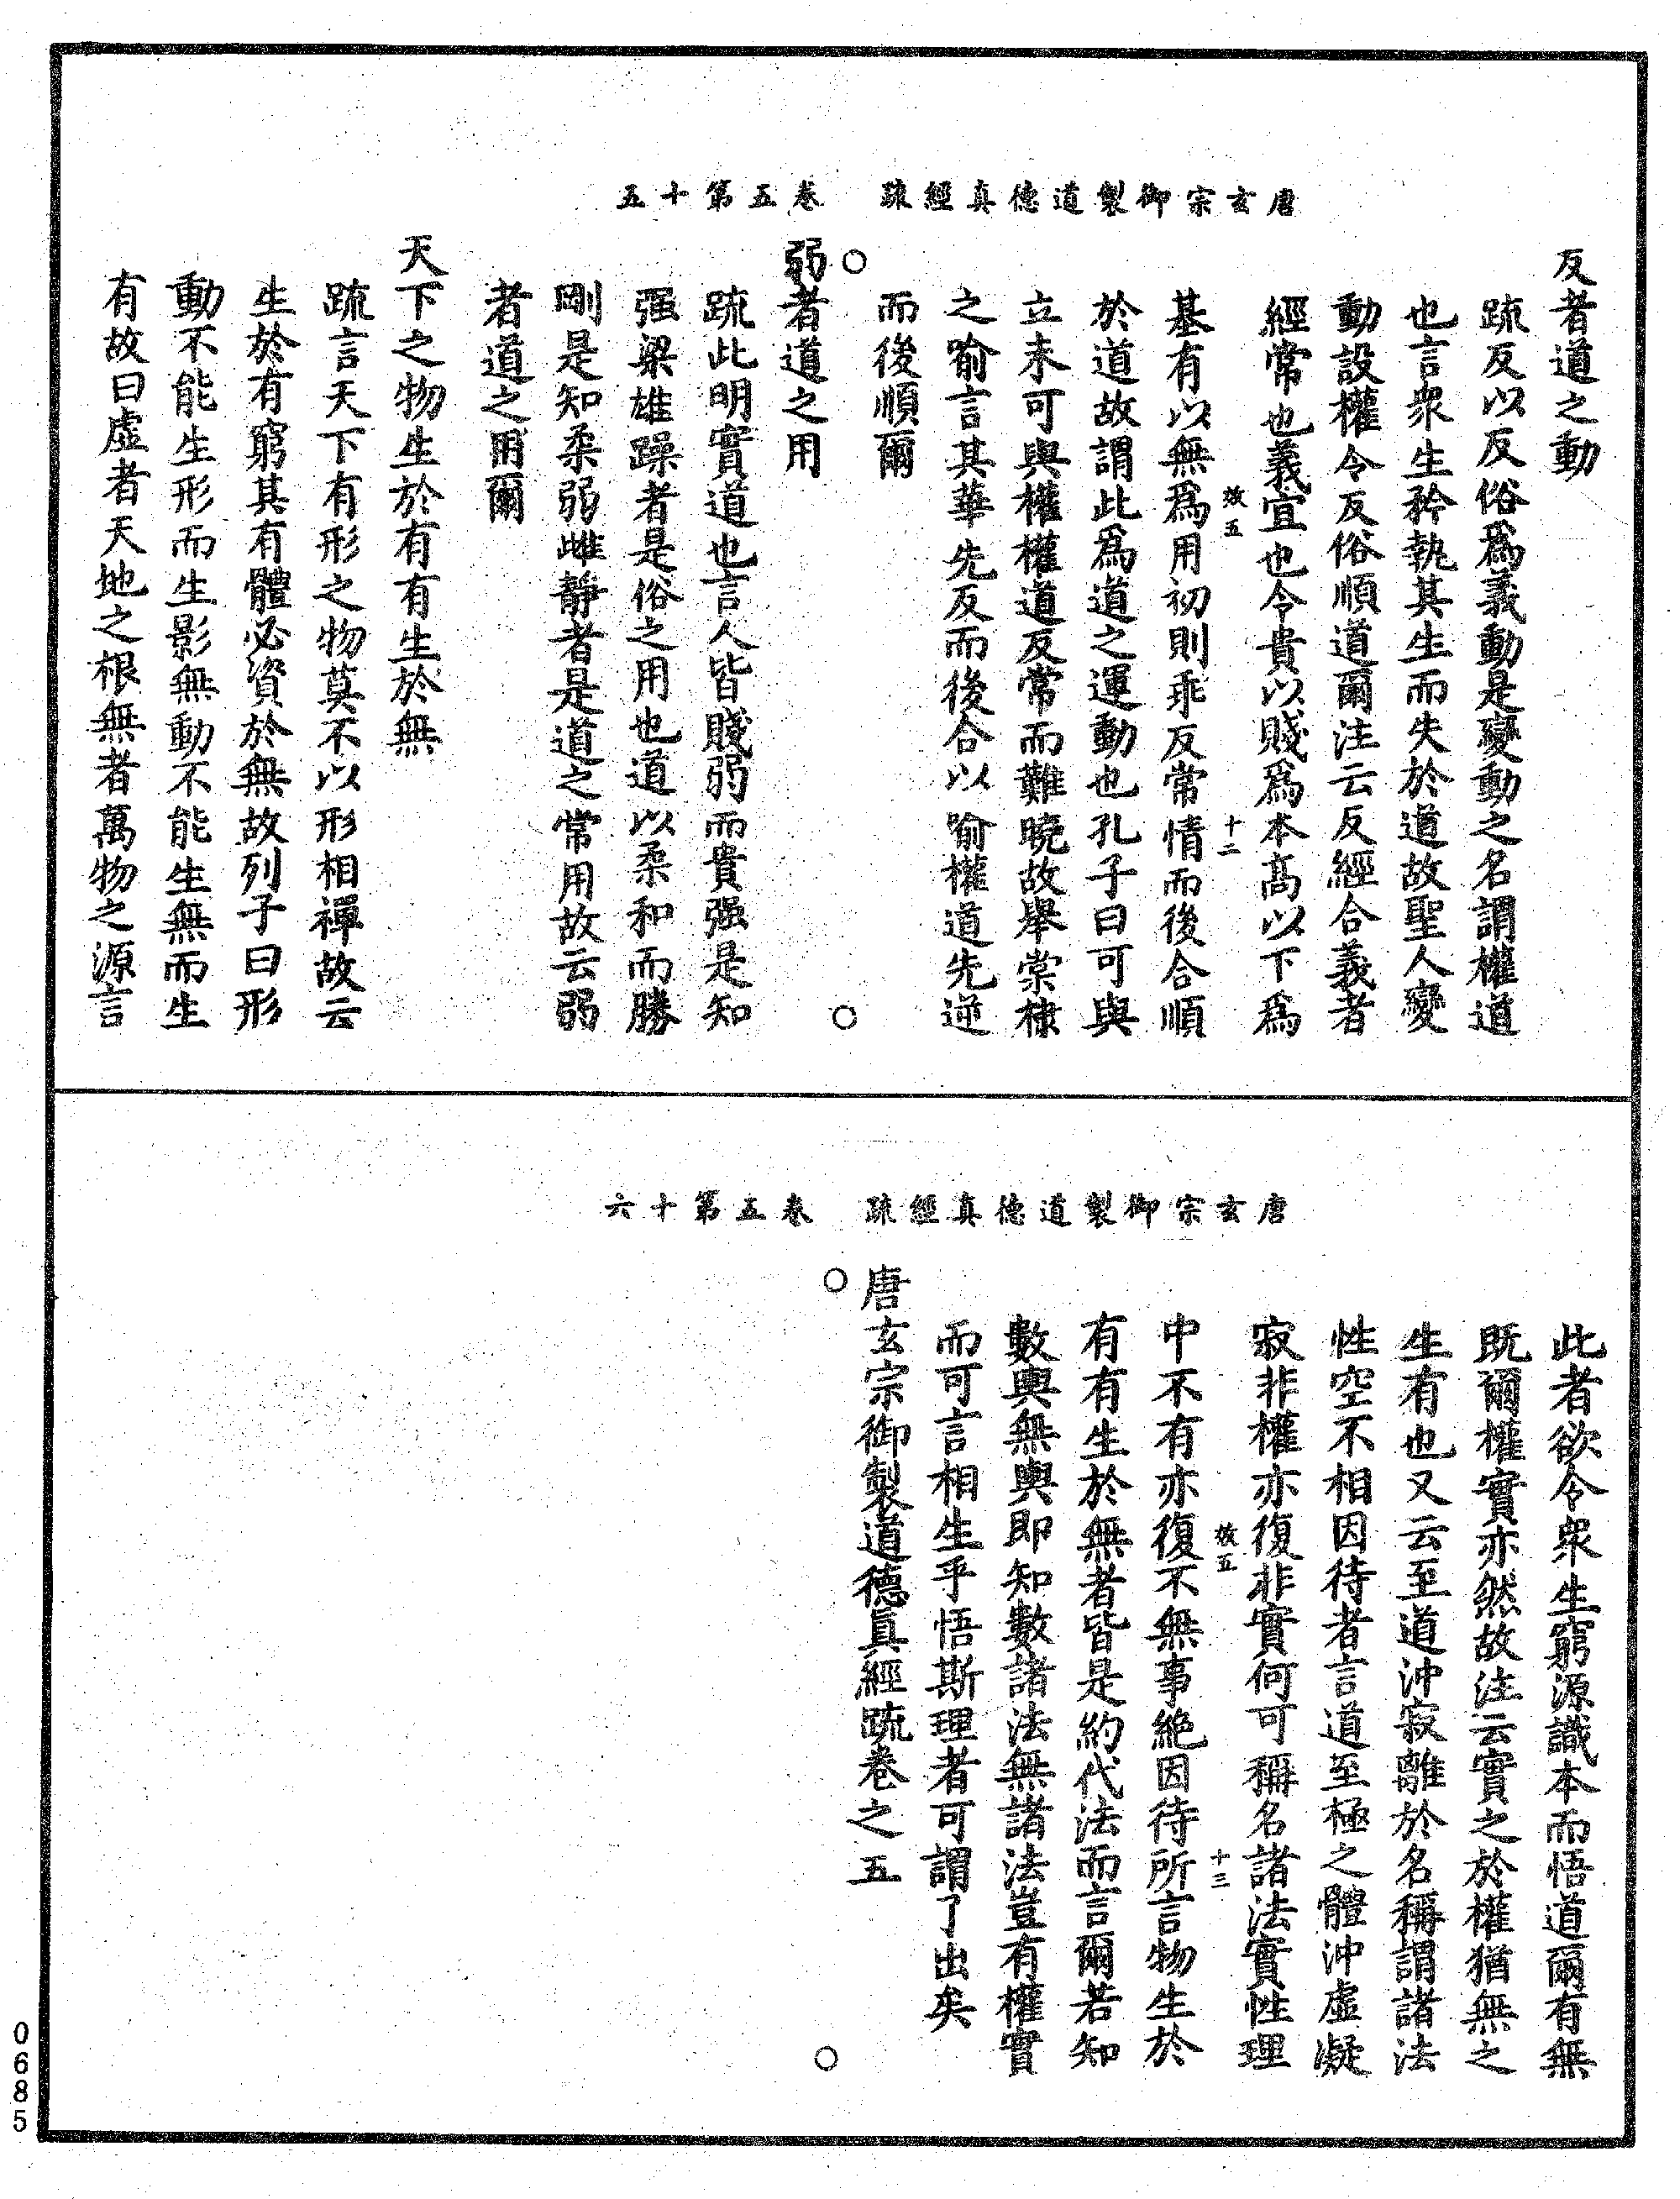 唐玄宗御製道德真經疏　卷五第十五
反者道之動
疏反以反俗爲義動是變動之名謂權道
也言衆生矜執其生而失於道故聖人變
動設權令反俗順道爾注云反經合義者
經常也義宜也令貴以賤爲本高以下爲
效五　十二
基有以無爲用初則乖反常情而後合順
於道故謂此爲道之運動也孔子曰可與
立未可與權權道反常而難曉故舉棠棣
之喻言其華先反而後合以喻權道先逆
而後順爾
弱者道之用
疏此明實道也言人皆賤弱而貴强是知
强梁雄躁者是俗之用也道以柔和而勝
剛是知柔弱雌靜者是道之常用故云弱
者道之用爾
天下之物生於有有生於無
疏言天下有形之物莫不以形相禪故云
生於有窮其有體必資於無故列子曰形
動不能生形而生影無動不能生無而生
有故曰虛者天地之根無者萬物之源言
唐玄宗御製道德真經疏　卷五第十六
此者欲令衆生窮源識本而悟道爾有無
既爾權實亦然故注云實之於權猶無之
生有也又云至道沖寂離於名稱謂諸法
性空不相因待者言道至極之體沖虛凝
寂非權亦復非實何可稱名諸法實性理
效五　十三
中不有亦復不無事絶因待所言物生於
有有生於無者皆是約代法而言爾若知
數輿無輿即知數諸法無諸法豈有權實
而可言相生乎悟斯理者可謂了出矣
唐玄宗御製道德眞經疏卷之五
0685